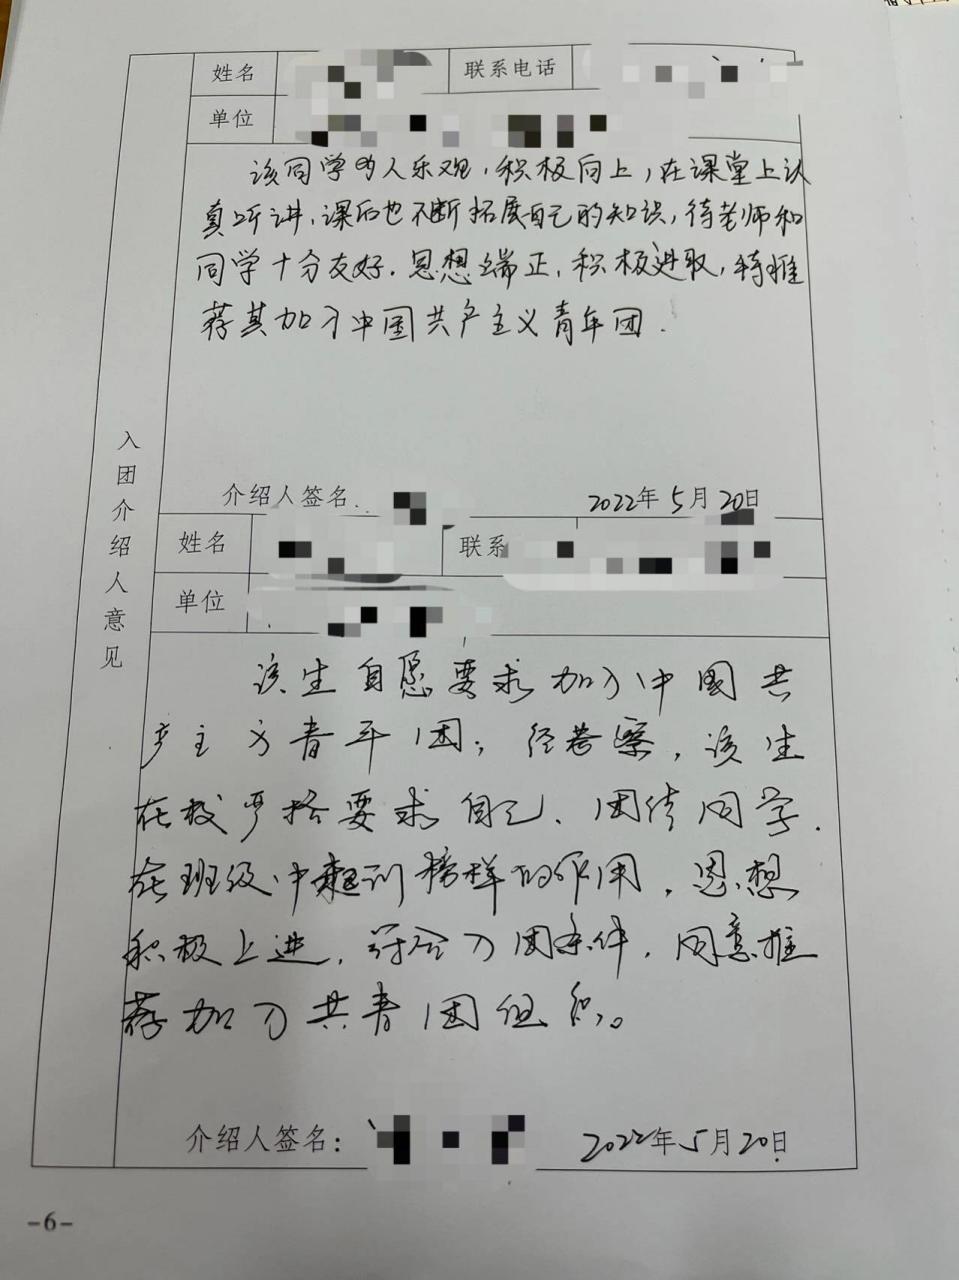 姓名 联系电话
单位
该同学为人乐观，积极向上，在课堂上认
真听讲，课后也不断拓展自己的知识，待老师和
同学十分友好。思想端正，积极进取，特推
荐其加入中国共产主义青年团.
介绍人签名 2022年5月20日
入团介绍人意见
姓名 联系
单位
该生自愿要求加入中国共
产主义青年团，经考察，该生
在校严格要求自己、团结同学.
在班级中起到榜样的作用，思想
积极上进，符合入团条件，同意推
荐加入共青团组织。
介绍人签名： 2022年5月20日
-6-